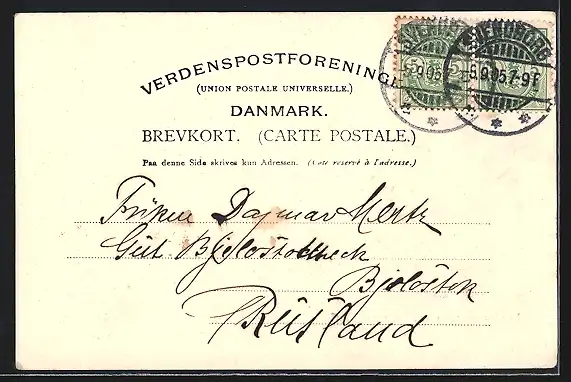 VERDENSPOSTFORENINGEN
(UNION POSTALE UNIVERSELLE.)
DANMARK.
BREVKORT. (CARTE POSTALE.)
Paa denne Side skrives kun Adressen. (Côté réservé à l'adresse.)
SVENDBORG
5.9.05.7-9F
Fröken Dagmar Mertz
Gut
Bjelostok
Rusland